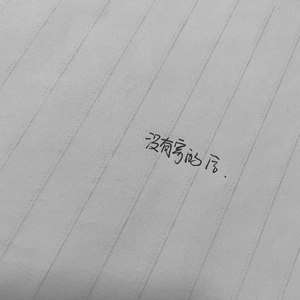 没有写的信.